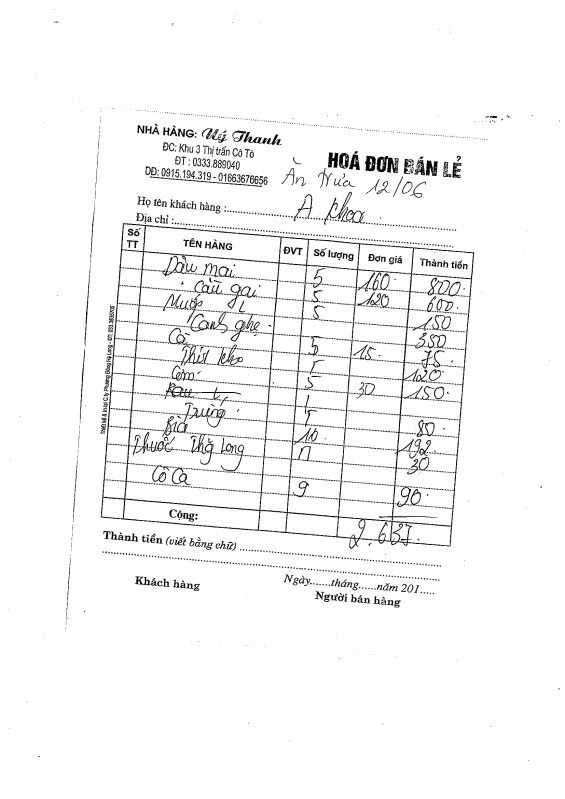 NHÀ HÀNG: Uý Thanh
ĐC: Khu 3 Thị trấn Cô Tô
ĐT : 0333.889040
DĐ: 0915.194.319 - 01663676656
HOÁ ĐƠN BÁN LẺ
Ăn trưa 12/06
Họ tên khách hàng : A Khoa
Địa chỉ :
Số TT TÊN HÀNG ĐVT Số lượng Đơn giá Thành tiền
Dầu mai 5 160 800
Cầu gai 5 120 600
Mước 5 150
Canh ghẹ 350
Cà 5 15 75
Thịt kho 120
Cơm 5 30 150
Rau 1
Trứng 1 80
Bia 16 192
Thuốc Thg long 30
Cô Ca 9 90
Cộng: 2.637
Thành tiền (viết bằng chữ)
Ngày.......tháng......năm 201.....
Khách hàng Người bán hàng